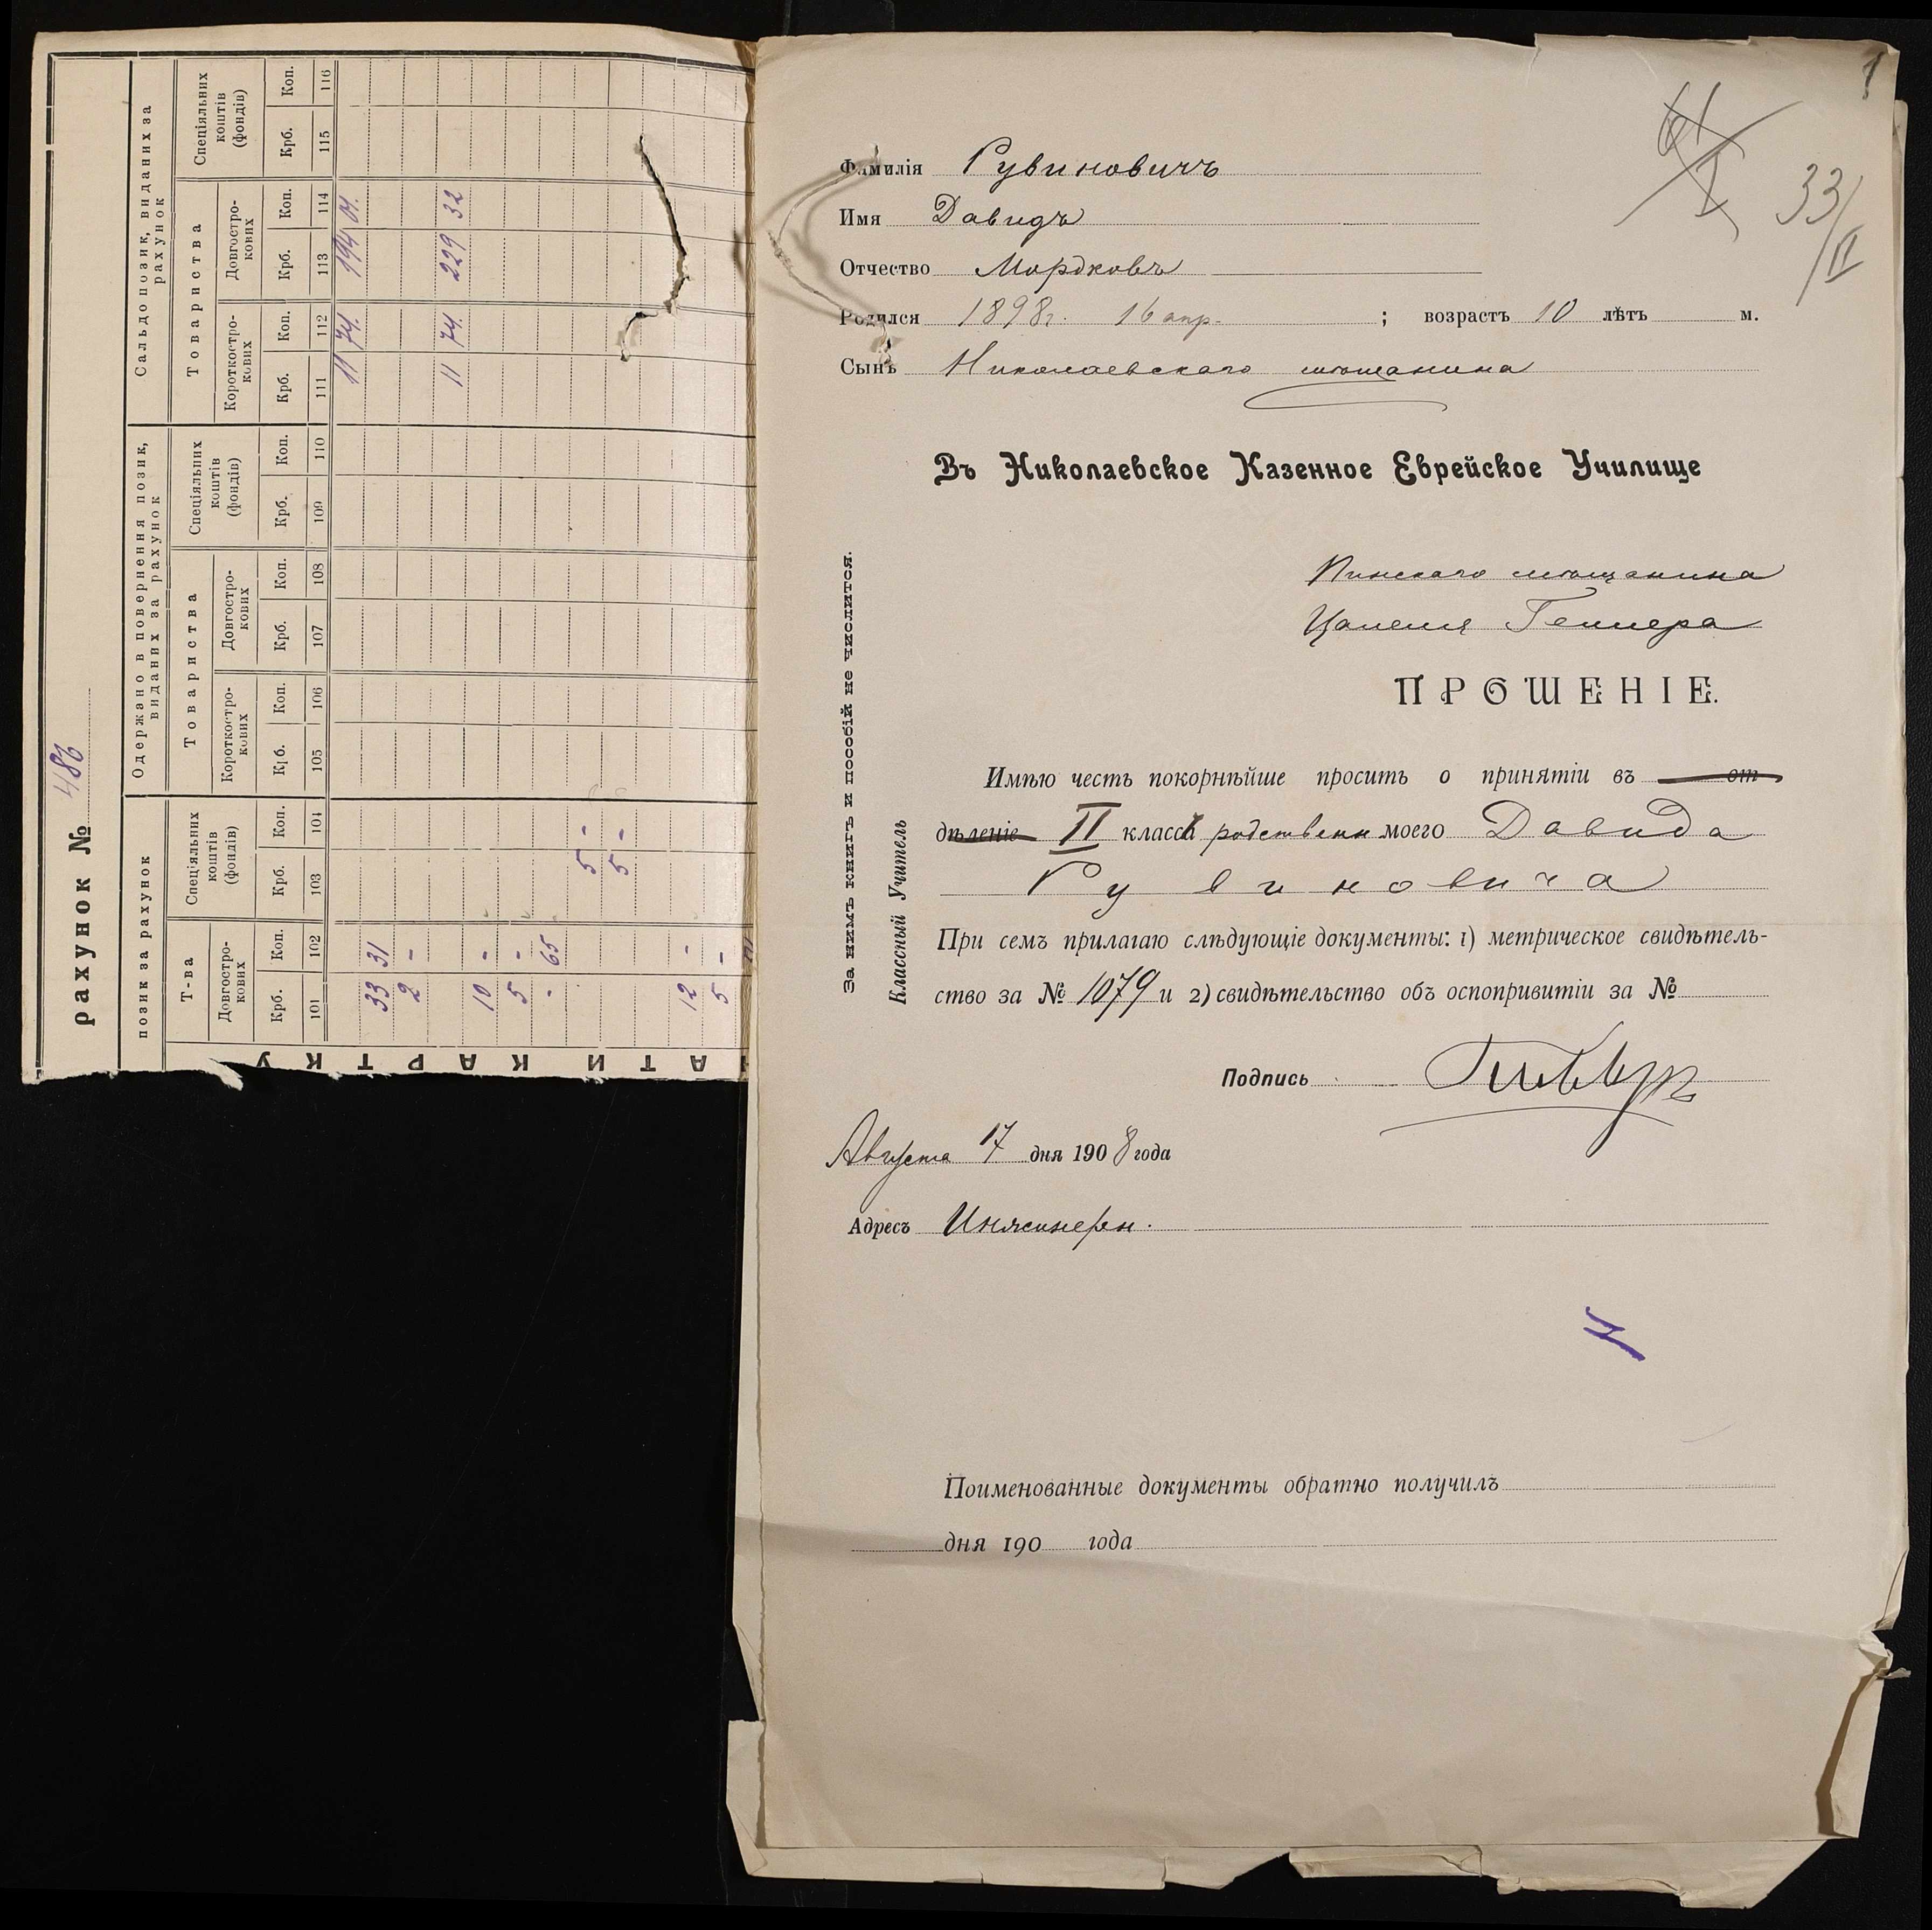 рахунок № 486
позик за рахунок
Одержано в повернення позик, виданих за рахунок
Сальдо позик, виданих за рахунок
Т-ва
Спеціяльних коштів (фондів)
Товариства
Спеціяльних коштів (фондів)
Товариства
Спеціяльних коштів (фондів)
Довгостро-кових
Короткостро-кових
Довгостро-кових
Короткостро-кових
Довгостро-кових
Крб. Коп. Крб. Коп. Крб. Коп. Крб. Коп. Крб. Коп. Крб. Коп. Крб. Коп. Крб. Коп.
101 102 103 104 105 106 107 108 109 110 111 112 113 114 115 116
11 74. 194 01.
33 31
2 -
11 74. 229 32
10 -
5 -
- 65
5 -
5 -
12 -
5 -
АТИ КАРТКУ
1
33/II
Фамилія Рувиновичъ
Имя Давидъ
Отчество Мордковъ
Родился 1898г. 16 апр. ; возрастъ 10 лѣтъ м.
Сынъ Николаевскаго мѣщанина
Въ Николаевское Казенное Еврейское Училище
Пинскаго мѣщанина
ПРОШЕНІЕ.
Имѣю честь покорнѣйше просить о принятіи въ от
дѣленіе II класса родственн моего Давида
Рувиновича
При семъ прилагаю слѣдующіе документы: 1) метрическое свидѣтель-
ство за № 1079 и 2) свидѣтельство объ оспопривитіи за №
Подпись
Августа 17 дня 1908 года
Адресъ Инженерн.
За нимъ книгъ и пособій не числится.
Классный Учитель
Поименованные документы обратно получилъ
дня 190 года